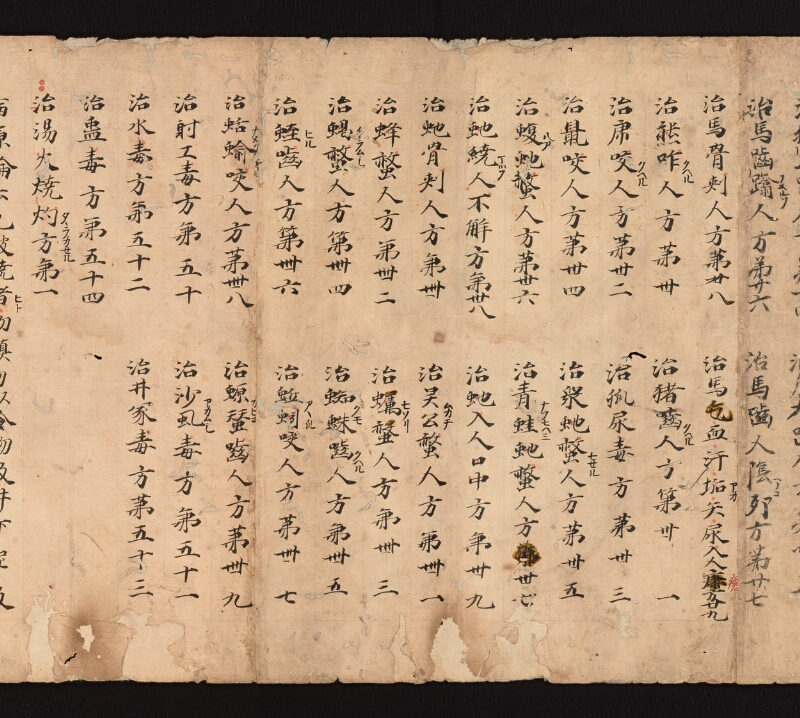 治馬嚙蹹人方第廿六 治馬嚙人陰卵方第廿七
治馬骨刺人方第廿八 治馬毛血汗垢矢尿入人瘡方廿九
治熊咋人方第卅 治猪嚙人方第卅一
治虎咬人方第卅二 治狐尿毒方第卅三
治鼠咬人方第卅四 治衆虵螫人方第卅五
治蝮虵螫人方第卅六 治青蛙虵螫人方第卅七
治虵繞人不解方第卅八 治虵入人口中方第卅九
治虵骨刺人方第卌 治吴公螫人方第卌一
治蜂螫人方第卌二 治蠆螫人方第卌三
治蝎螫人方第卌四 治蜘蛛嚙人方第卌五
治蛭嚙人方第卌六 治蚯蚓咬人方第卌七
治蛞蝓咬人方第卌八 治螈蚕嚙人方第卌九
治射工毒方第五十 治沙虱毒方第五十一
治水毒方第五十二 治井冢毒方第五十三
治蛊毒方第五十四
治湯火燒灼方第一
病源論云凡被燒者初慎勿以冷物及井下泥及